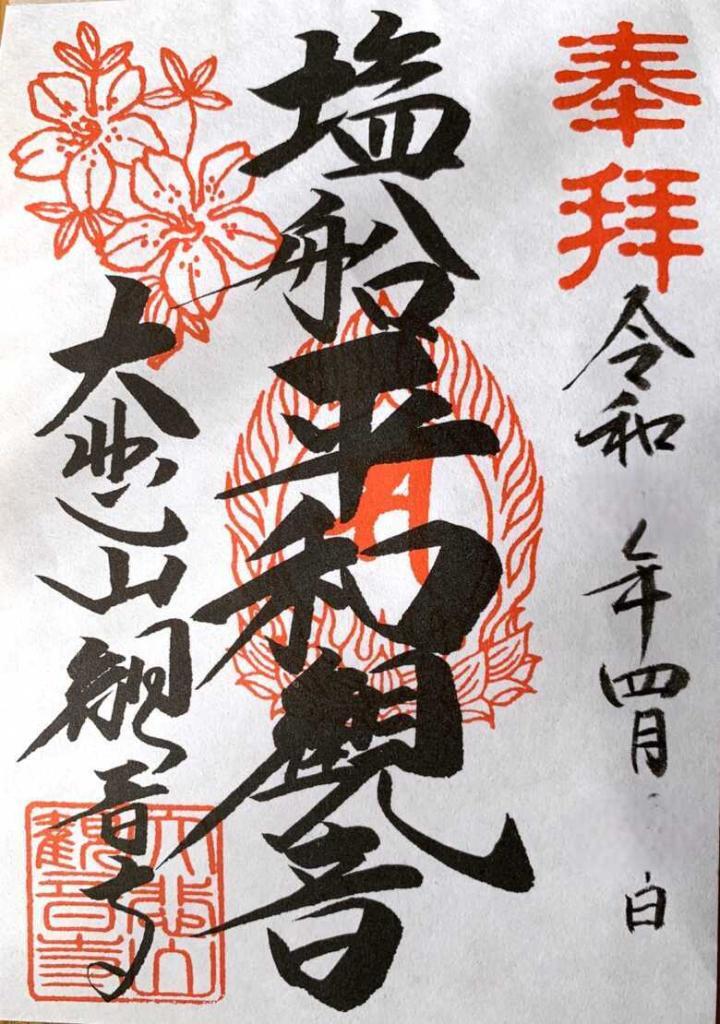 奉拝
令和 年四月 日
塩船平和観音
大悲山観音寺
大悲山
觀音寺